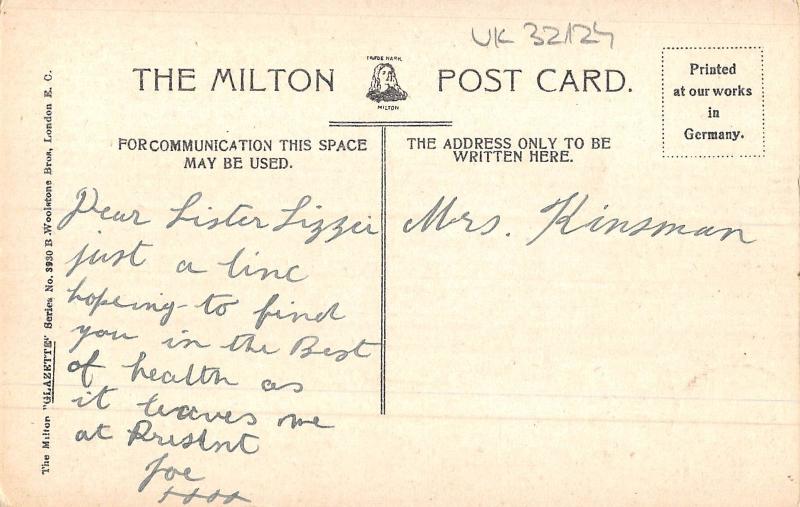 UK 32124
THE MILTON POST CARD.
TRADE MARK
MILTON
Printed
at our works
in
Germany.
FOR COMMUNICATION THIS SPACE
MAY BE USED.
THE ADDRESS ONLY TO BE
WRITTEN HERE.
The Milton "GLAZETTE" Series No. 3930 B Woolstone Bros, London E. C.
Dear Sister Lizzie
just a line
hopeing to find
you in the Best
of health as
it leaves me
at Present
Joe
xxxx
Mrs. Kinsman